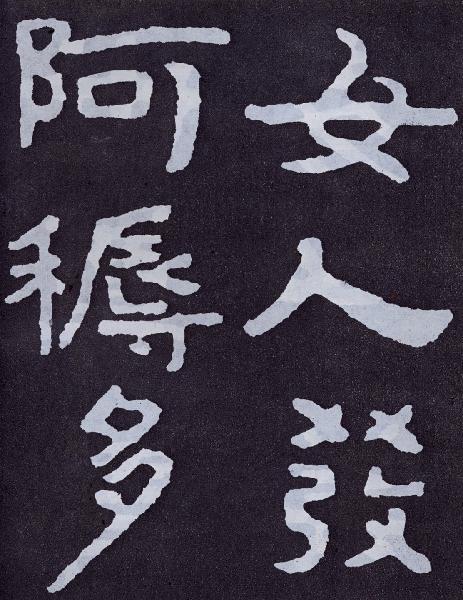 女人發
阿耨多